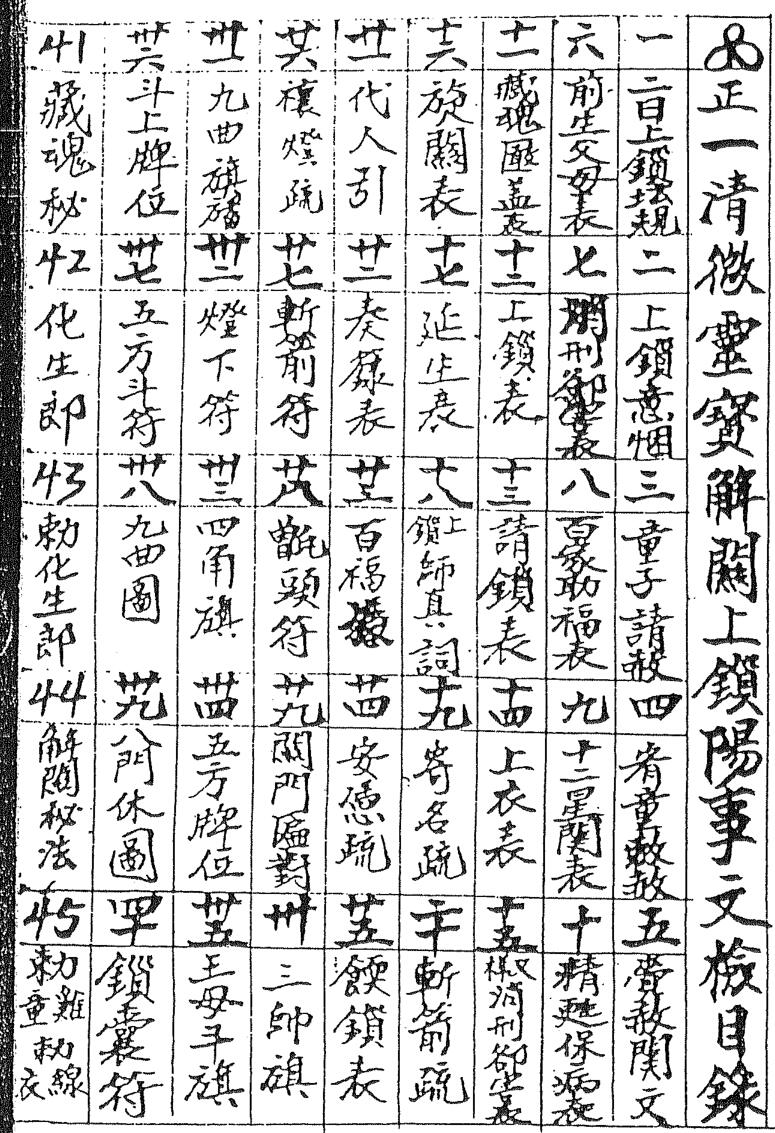 正一清微靈寶解關上鎖陽事文檢目錄
一 二日上鎖坛規
二 上鎖意烟
三 童子請赦
四 宥童敕赦
五 赦関文
六 前生父母表
七 消刑却害表
八 百家助福表
九 十二星関表
十 精甦保病表
十一 藏魂匭蓋表
十二 上鎖表
十三 請鎖表
十四 上衣表
十五 消刑卻害表
十六 旋關表
十七 延生表
十八 上鎖師真詞
十九 寄名疏
二十 斬箭疏
廿一 代人引
廿二 奏籙表
廿三 百福
廿四 安慰疏
廿五 鎖表
廿六 禳燈疏
廿七 斬箭符
廿八 頸符
廿九 關門匾對
卅 三帥旗
卅一 九曲旗
卅二 燈下符
卅三 四角旗
卅四 五方牌位
卅五 王母子旗
卅六 斗上牌位
卅七 五方斗符
卅八 九曲圖
卅九 八門休圖
四十 鎖囊符
41 藏魂秘
42 化生郎
43 勅化生郎
44 解關秘法
45 勅雞勅線童衣